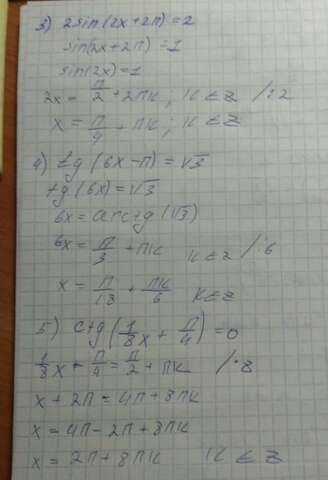 3) 2sin(2x+2π)=2
sin(2x+2π)=1
sin(2x)=1
2x = π/2 + 2πk; k ∈ z /:2
x = π/4 + πk; k ∈ z
4) tg(6x-π)=√3
tg(6x)=√3
6x = arctg(√3)
6x = π/3 + πk k ∈ z /:6
x = π/18 + πk/6 k ∈ z
5) ctg(1/8x + π/4)=0
1/8x + π/4 = π/2 + πk /·8
x + 2π = 4π + 8πk
x = 4π - 2π + 8πk
x = 2π + 8πk k ∈ z